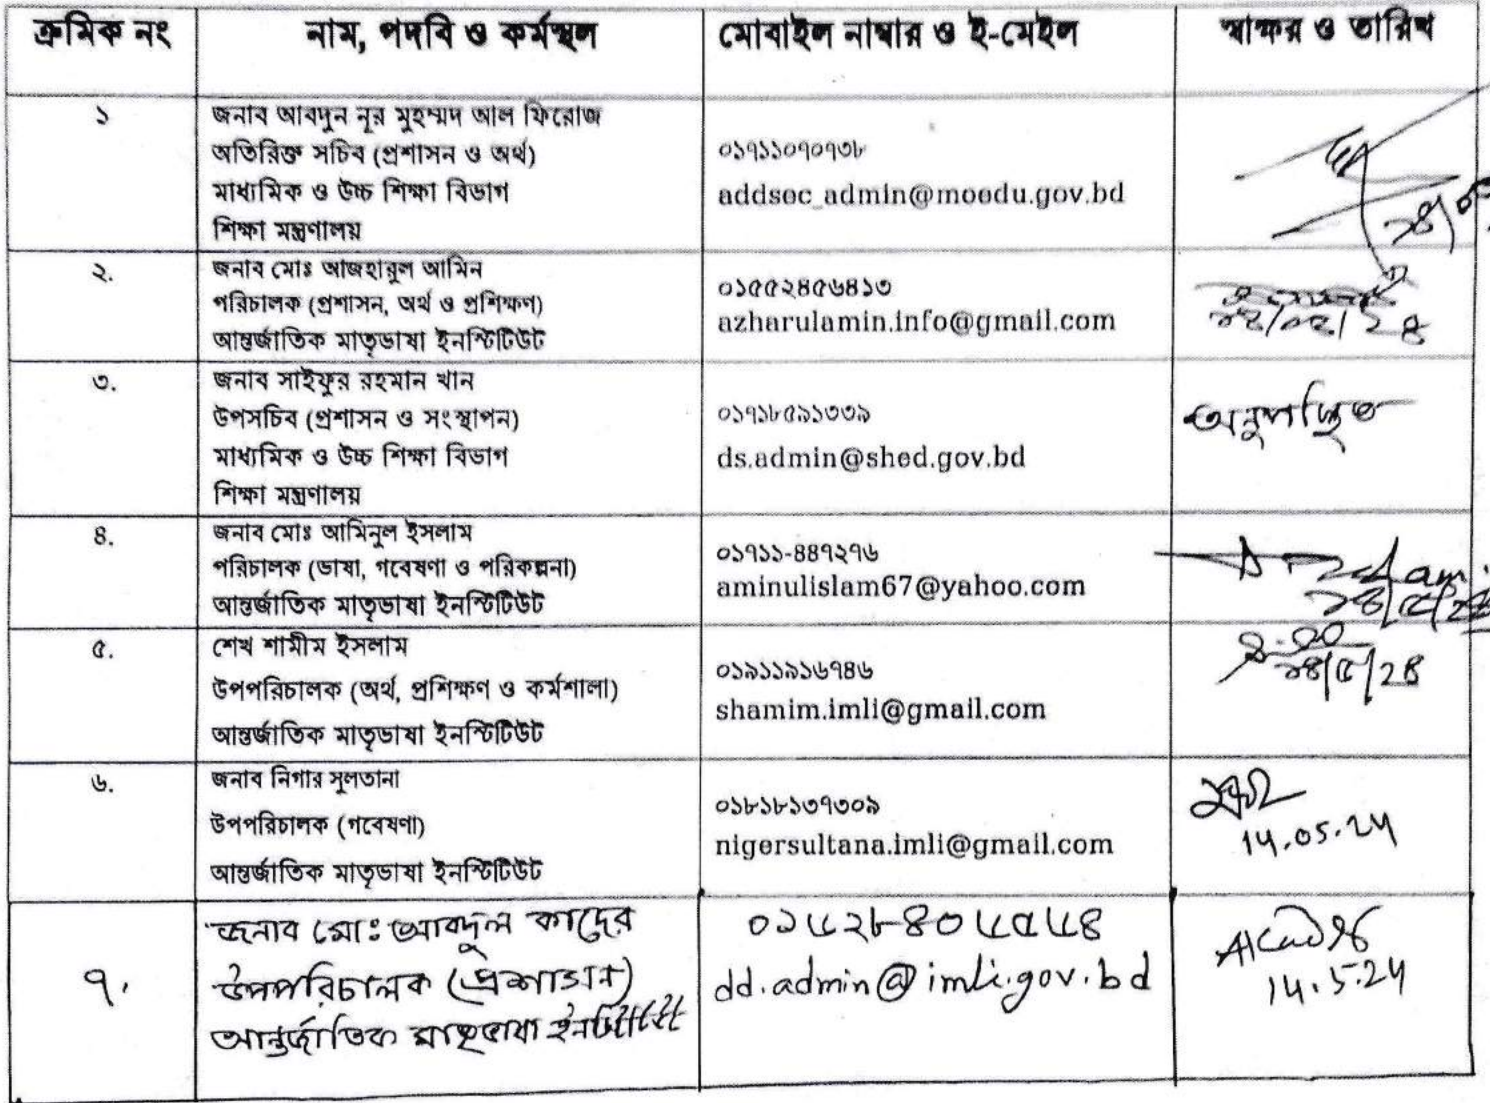 ক্রমিক নং
নাম, পদবি ও কর্মস্থল
মোবাইল নাম্বার ও ই-মেইল
স্বাক্ষর ও তারিখ
১
জনাব আবদুন নূর মুহম্মদ আল ফিরোজ
অতিরিক্ত সচিব (প্রশাসন ও অর্থ)
মাধ্যমিক ও উচ্চ শিক্ষা বিভাগ
শিক্ষা মন্ত্রণালয়
০১৭১১০৭০৭৩৮
addsec_admin@moedu.gov.bd
২.
জনাব মোঃ আজহারুল আমিন
পরিচালক (প্রশাসন, অর্থ ও প্রশিক্ষণ)
আন্তর্জাতিক মাতৃভাষা ইনস্টিটিউট
০১৫৫২৪৫৬৪১৩
azharulamin.info@gmail.com
৩.
জনাব সাইফুর রহমান খান
উপসচিব (প্রশাসন ও সংস্থাপন)
মাধ্যমিক ও উচ্চ শিক্ষা বিভাগ
শিক্ষা মন্ত্রণালয়
০১৭১৮৫৯১৩৩৯
ds.admin@shed.gov.bd
অনুপস্থিত
৪.
জনাব মোঃ আমিনুল ইসলাম
পরিচালক (ভাষা, গবেষণা ও পরিকল্পনা)
আন্তর্জাতিক মাতৃভাষা ইনস্টিটিউট
০১৭১১-৪৪৭২৭৬
aminulislam67@yahoo.com
৫.
শেখ শামীম ইসলাম
উপপরিচালক (অর্থ, প্রশিক্ষণ ও কর্মশালা)
আন্তর্জাতিক মাতৃভাষা ইনস্টিটিউট
০১৯১১৯১৬৭৪৬
shamim.imli@gmail.com
১৪/৫/২৪
৬.
জনাব নিগার সুলতানা
উপপরিচালক (গবেষণা)
আন্তর্জাতিক মাতৃভাষা ইনস্টিটিউট
০১৮১৮১৩৭৩০৯
nigersultana.imli@gmail.com
14.05.24
৭.
জনাব মোঃ আবদুল কাদের
উপপরিচালক (প্রশাসন)
আন্তর্জাতিক মাতৃভাষা ইনস্টিটিউট
dd.admin@imli.gov.bd
14.5.24